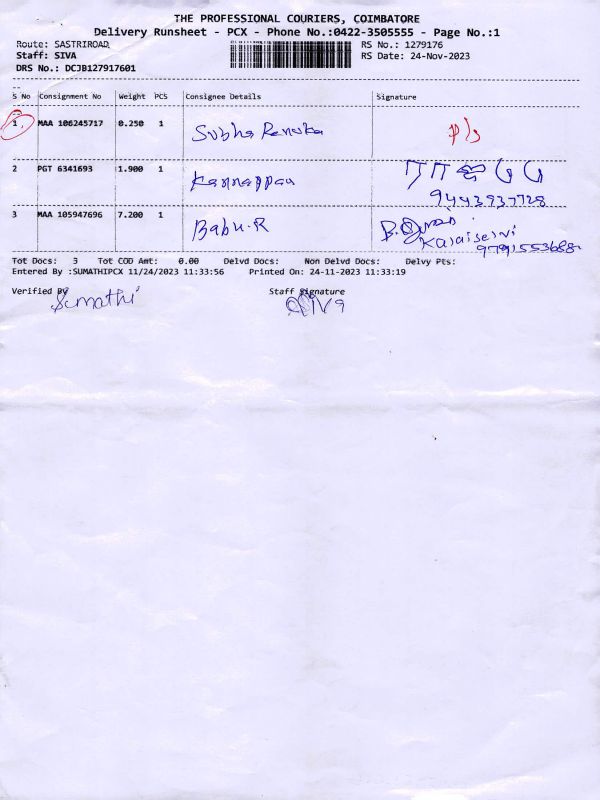 THE PROFESSIONAL COURIERS, COIMBATORE
Delivery Runsheet - PCX - Phone No.:0422-3505555 - Page No.:1
Route: SASTRIROAD RS No.: 1279176
Staff: SIVA RS Date: 24-Nov-2023
DRS No.: DCJB127917601
S No Consignment No Weight PCS Consignee Details Signature
1 MAA 106245717 0.250 1 Subha Renuka
2 PGT 6341693 1.900 1 Kannappan
9443937728
3 MAA 105947696 7.200 1 Babu.R
Kalaiselvi
9791553688
Tot Docs: 3 Tot COD Amt: 0.00 Delvd Docs: Non Delvd Docs: Delvy Pts:
Entered By :SUMATHIPCX 11/24/2023 11:33:56 Printed On: 24-11-2023 11:33:19
Verified By Staff Signature
Sumathi Siva